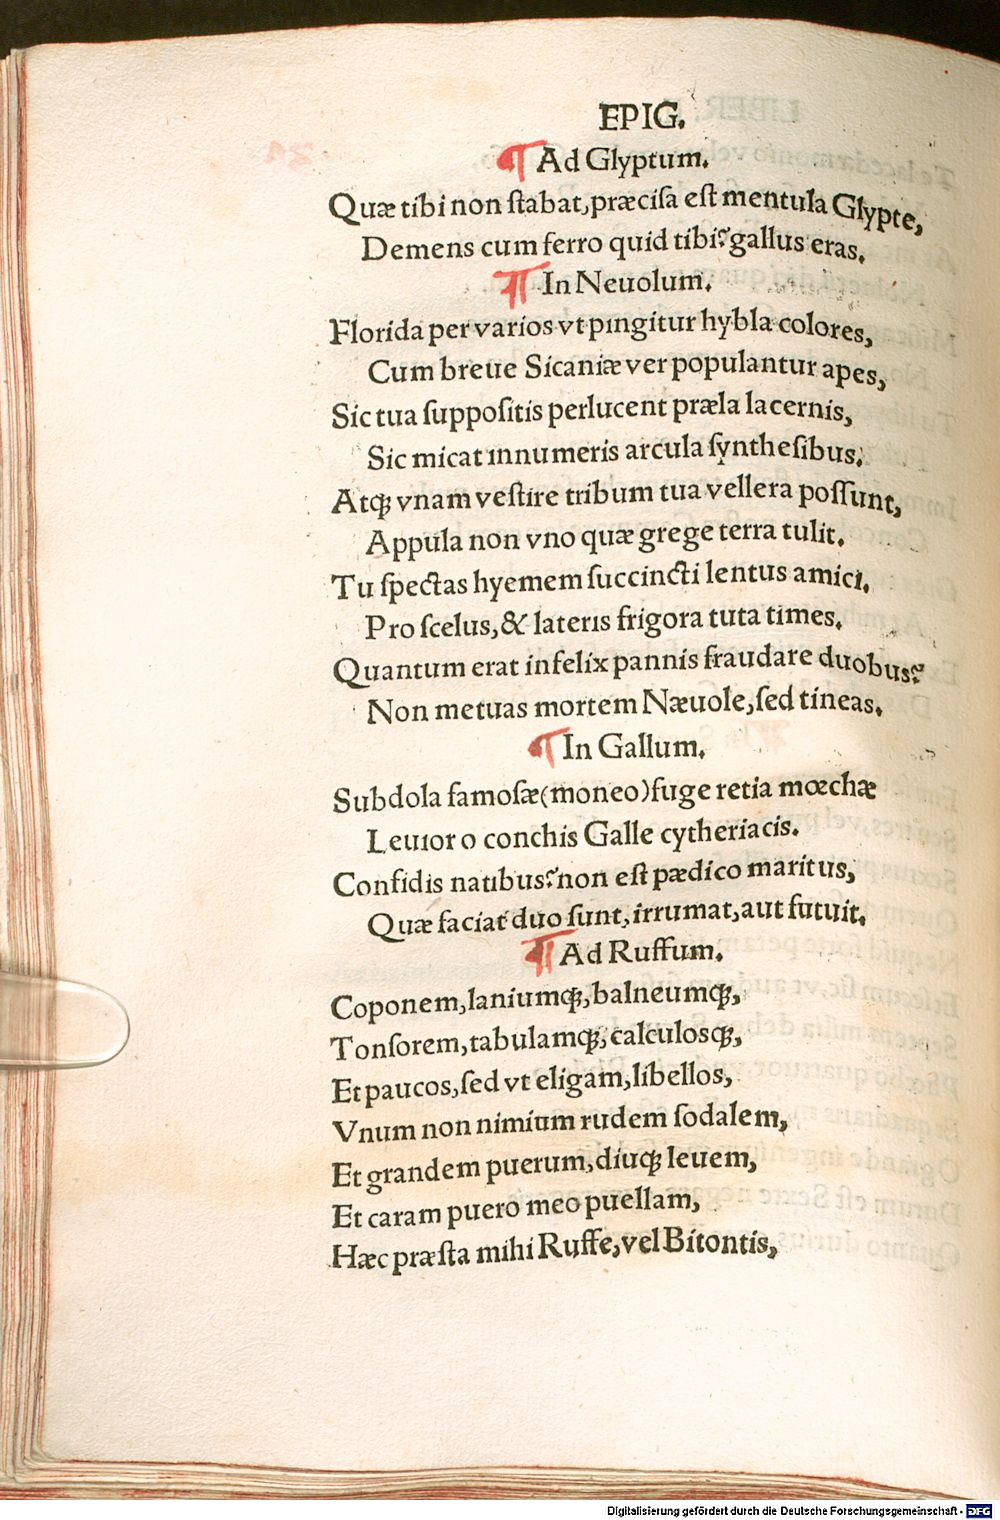 EPIG.
¶ Ad Glyptum.
Quæ tibi non ſtabat, præciſa eſt mentula Glypte,
Demens cum ferro quid tibi? gallus eras.
¶ In Neuolum.
Florida per varios vt pingitur hybla colores,
Cum breue Sicaniæ ver populantur apes,
Sic tua ſuppoſitis perlucent præla lacernis,
Sic micat innumeris arcula ſyntheſibus.
Atqꝫ vnam veſtire tribum tua vellera poſſunt,
Appula non vno quæ grege terra tulit.
Tu ſpectas hyemem ſuccincti lentus amici.
Pro ſcelus, & lateris frigora tuta times.
Quantum erat infelix pannis fraudare duobus?
Non metuas mortem Næuole, ſed tineas.
¶ In Gallum.
Subdola famoſæ (moneo) fuge retia mœchæ
Leuior o conchis Galle cytheriacis.
Confidis natibus? non eſt pædico maritus,
Quæ faciat duo ſunt, irrumat, aut futuit.
¶ Ad Ruffum.
Coponem, laniumqꝫ, balneumqꝫ,
Tonſorem, tabulamqꝫ, calculoſqꝫ,
Et paucos, ſed vt eligam, libellos,
Vnum non nimium rudem ſodalem,
Et grandem puerum, diuqꝫ leuem,
Et caram puero meo puellam,
Hæc præſta mihi Ruffe, vel Bitontis,
Digitalisierung gefördert durch die Deutsche Forschungsgemeinschaft - DFG